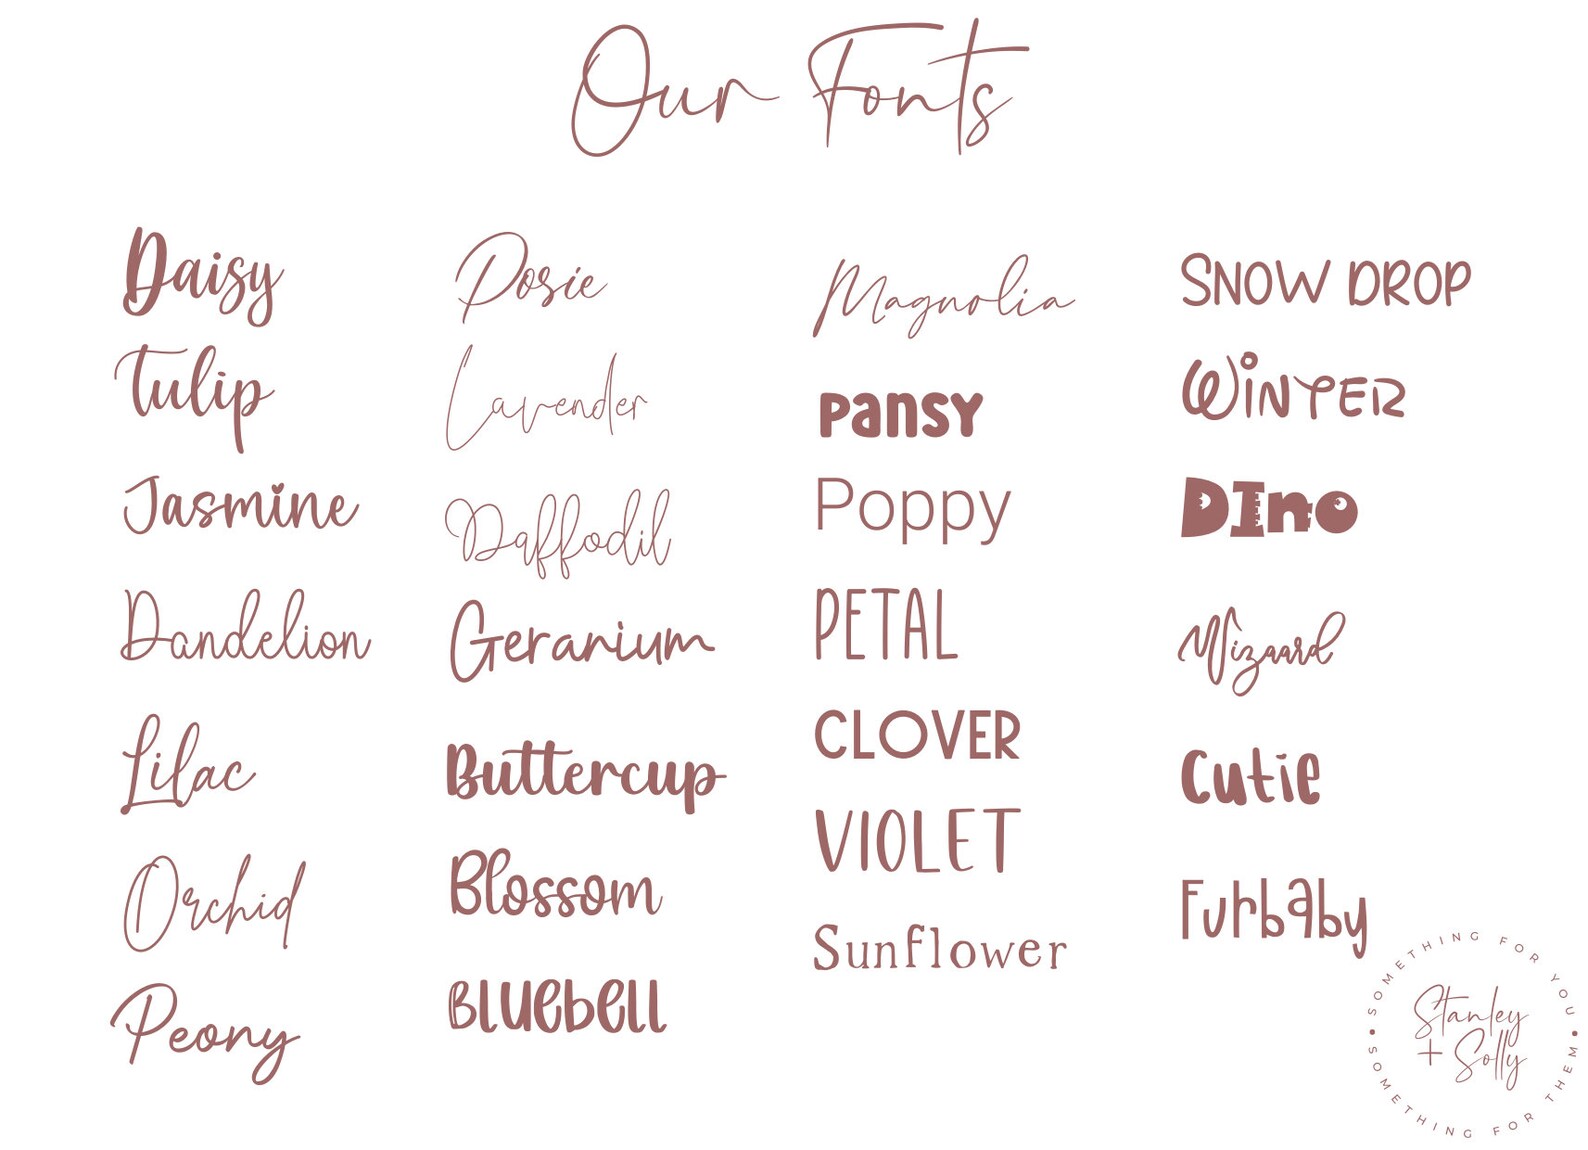 Our Fonts
Daisy
Tulip
Jasmine
Dandelion
Lilac
Orchid
Peony
Posie
Lavender
Daffodil
Geranium
Buttercup
Blossom
Bluebell
Magnolia
Pansy
Poppy
PETAL
CLOVER
VIOLET
Sunflower
SNOW DROP
WINTER
Dino
Wizaard
Cutie
Furbaby
SOMETHING FOR YOU
Stanley
+ Solly
SOMETHING FOR THEM